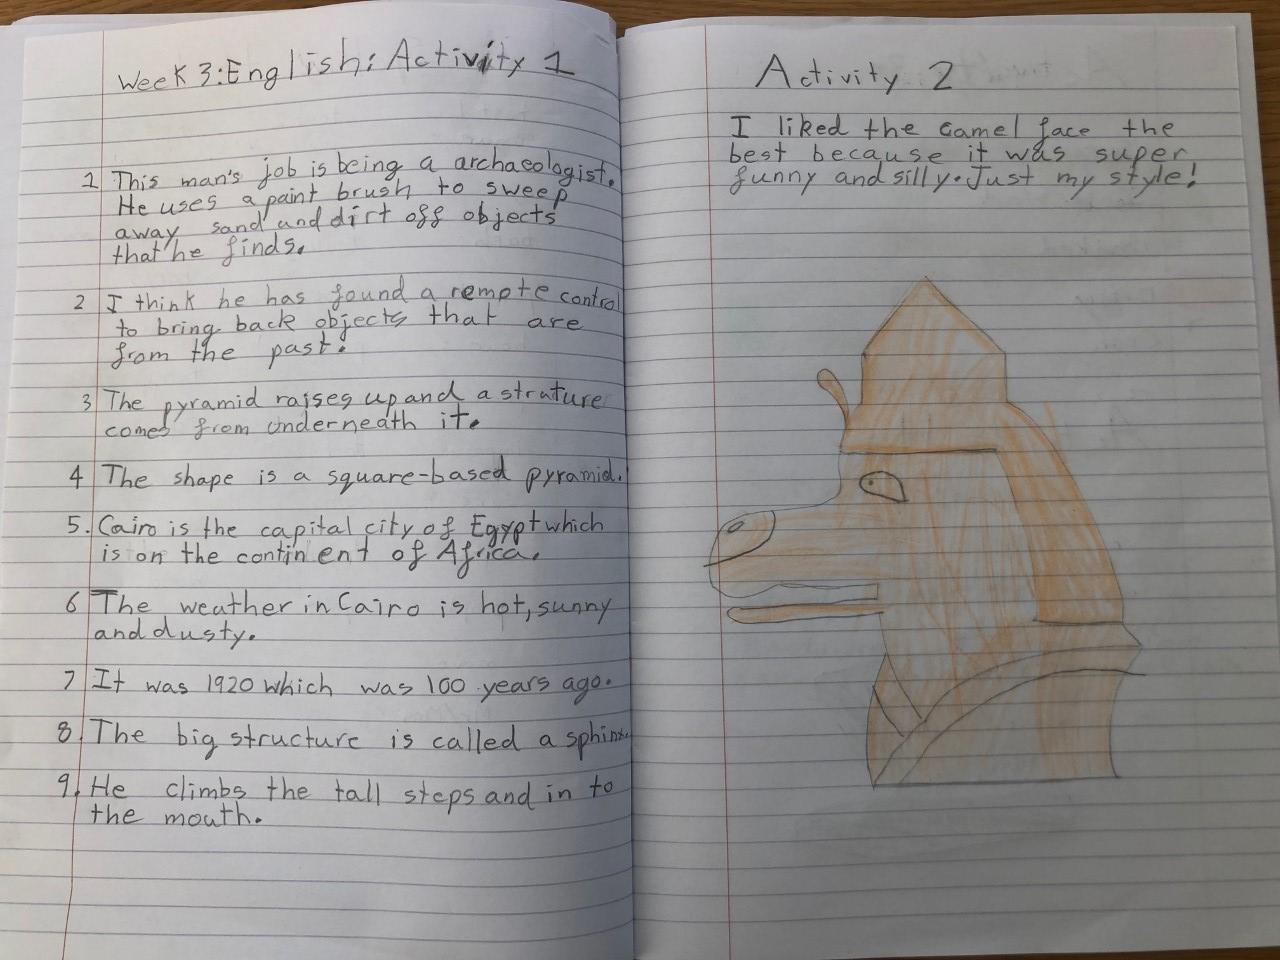 Week 3: English: Activity 1
1 This man's job is being a archaeologist.
He uses a paint brush to sweep
away sand and dirt off objects
that he finds.
2 I think he has found a remote control
to bring back objects that are
from the past.
3 The pyramid raises up and a strature
comes from underneath it.
4 The shape is a square-based pyramid.
5. Cairo is the capital city of Egypt which
is on the continent of Africa.
6 The weather in Cairo is hot, sunny
and dusty.
7 It was 1920 which was 100 years ago.
8 The big structure is called a sphinx.
9. He climbs the tall steps and in to
the mouth.
Activity 2
I liked the camel face the
best because it was super
funny and silly. Just my style!